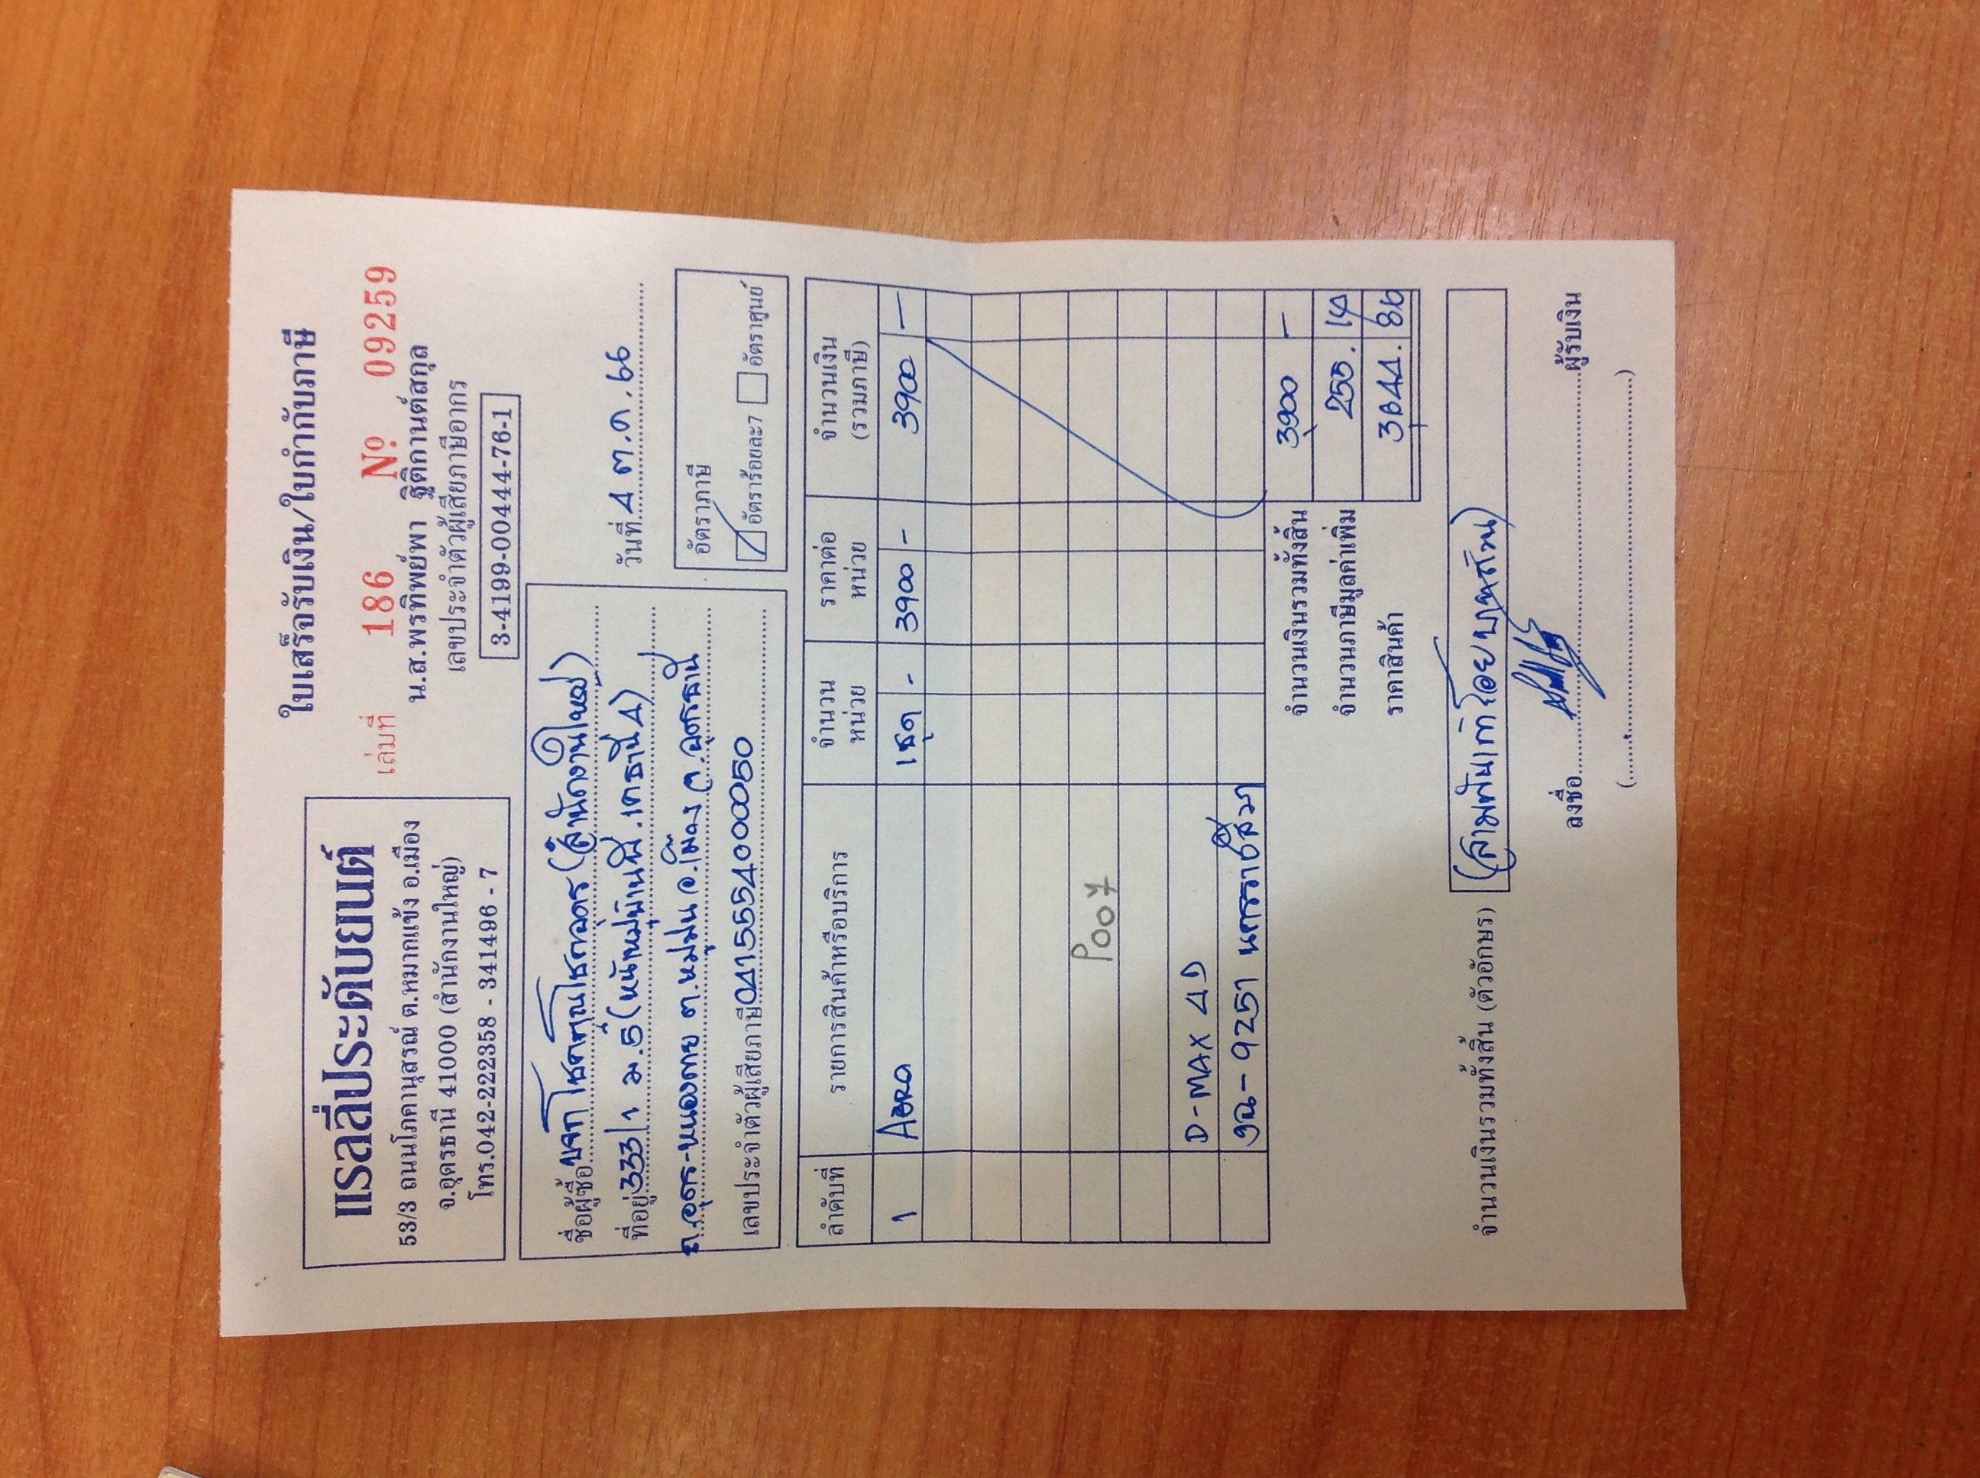 แรลลี่ประดับยนต์
53/3 ถนนโภคานุสรณ์ ต.หมากแข้ง อ.เมือง
จ.อุดรธานี 41000 (สำนักงานใหญ่)
โทร.042-222358 - 341496 - 7
ใบเสร็จรับเงิน/ใบกำกับภาษี
เล่มที่ 186 Nº 09259
น.ส.พรทิพย์พา ฐิติกานต์สกุล
เลขประจำตัวผู้เสียภาษีอากร
3-4199-00444-76-1
ชื่อผู้ซื้อ บจก โชคทวีโชคอุดร (สำนักงานใหญ่)
ที่อยู่ 333/1 ม.5 (หนักหมู่บ้านพี.เคธานี 4)
ถ.อุดร-หนองคาย ต.หมูม่น อ.เมือง จ.อุดรธานี
เลขประจำตัวผู้เสียภาษี 0415554000050
วันที่ 4 ต.ค. 66
อัตราภาษี
อัตราร้อยละ7 อัตราศูนย์
ลำดับที่ รายการสินค้าหรือบริการ จำนวนหน่วย ราคาต่อหน่วย จำนวนเงิน (รวมภาษี)
1 1ชุด - 3900 - 3900 -
P007
D-MAX 4D
9251 นครราชสีมา
จำนวนเงินรวมทั้งสิ้น 3900 -
จำนวนภาษีมูลค่าเพิ่ม 255.14
ราคาสินค้า 3644.86
จำนวนเงินรวมทั้งสิ้น (ตัวอักษร) (สามพันเก้าร้อยบาทถ้วน)
ลงชื่อ ผู้รับเงิน
( )